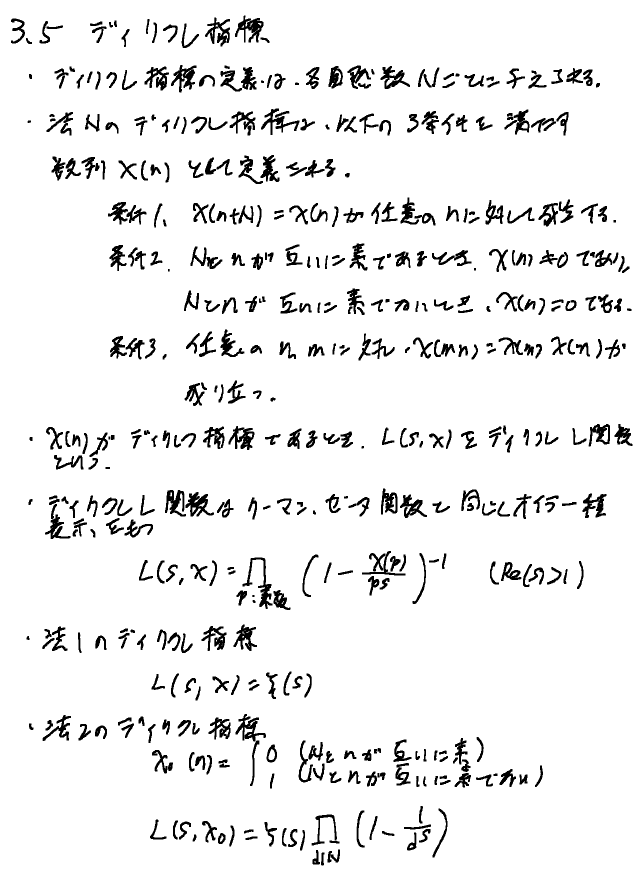 3.5 ディリクレ指標
・ディリクレ指標の定義は、各自然数Nごとに与えられる。
・法Nのディリクレ指標は、以下の3条件を満たす
数列χ(n)として定義される。
条件1、χ(n+N)=χ(n)が任意のnに対して成立する.
条件2. Nとnが互いに素であるとき、χ(n)≠0であり、
Nとnが互いに素でないとき、χ(n)=0である.
条件3. 任意のn, mに対し、χ(mn)=χ(m)χ(n)が
成り立つ。
・χ(n)がディリクレ指標であるとき. L(s,χ)をディリクレL関数
という.
・ディリクレL関数はリーマン・ゼータ関数と同じくオイラー積
表示をもつ
L(s,χ)=∏_{p:素数} (1-χ(p)/p^s)^{-1} (Re(s)>1)
・法1のディリクレ指標
L(s,χ)=ζ(s)
・法2のディリクレ指標
χ₀(n)= { 0 (Nとnが互いに素)
1 (Nとnが互いに素でない)
L(s,χ₀)=ζ(s)∏_{d|N} (1-1/d^s)